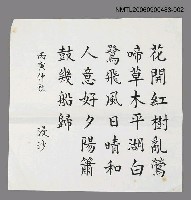 NMTL20060900483-002
花開紅樹亂鶯
啼草木平湖白
鷺飛風日晴和
人意好夕陽簫
鼓幾船歸
丙寅仲秋